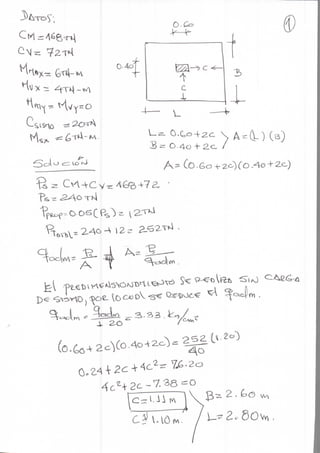 DATOS:
CM = 168 TN
CV = 72 TN
Mmax = 6 TN-M
Mvx = 4 TN-M
Mmy = Mvy = 0
CSISMO = 20 TN
Msx = 6 TN-M.
0.60
0.40
C
C
B
L
①
L = 0.60+2C
B = 0.40+2C
A = (L)(B)
A = (0.60+2C)(0.40+2C)
SOLUCION
Ps = CM+CV = 168+72
Ps = 240 TN
Ppeop = 0.05(Ps) = 12 TN
PTOTAL = 240+12 = 252 TN.
qadm = P/A A = P/qadm.
El PREDIMENSIONAMIENTO SE REALIZA SIN CARGA
DE SISMO, POR LO CUAL SE REDUCE El qadm.
qadm = qadm/1.20 = 3.33 kg/cm²
(0.60+2C)(0.40+2C) = 252/40 (1.20)
0.24+2C+4C² = 7.6.20
4C²+2C-7.38 = 0
C = 1.11 M
C ≅ 1.10 M.
B = 2.60 M
L = 2.80 M.